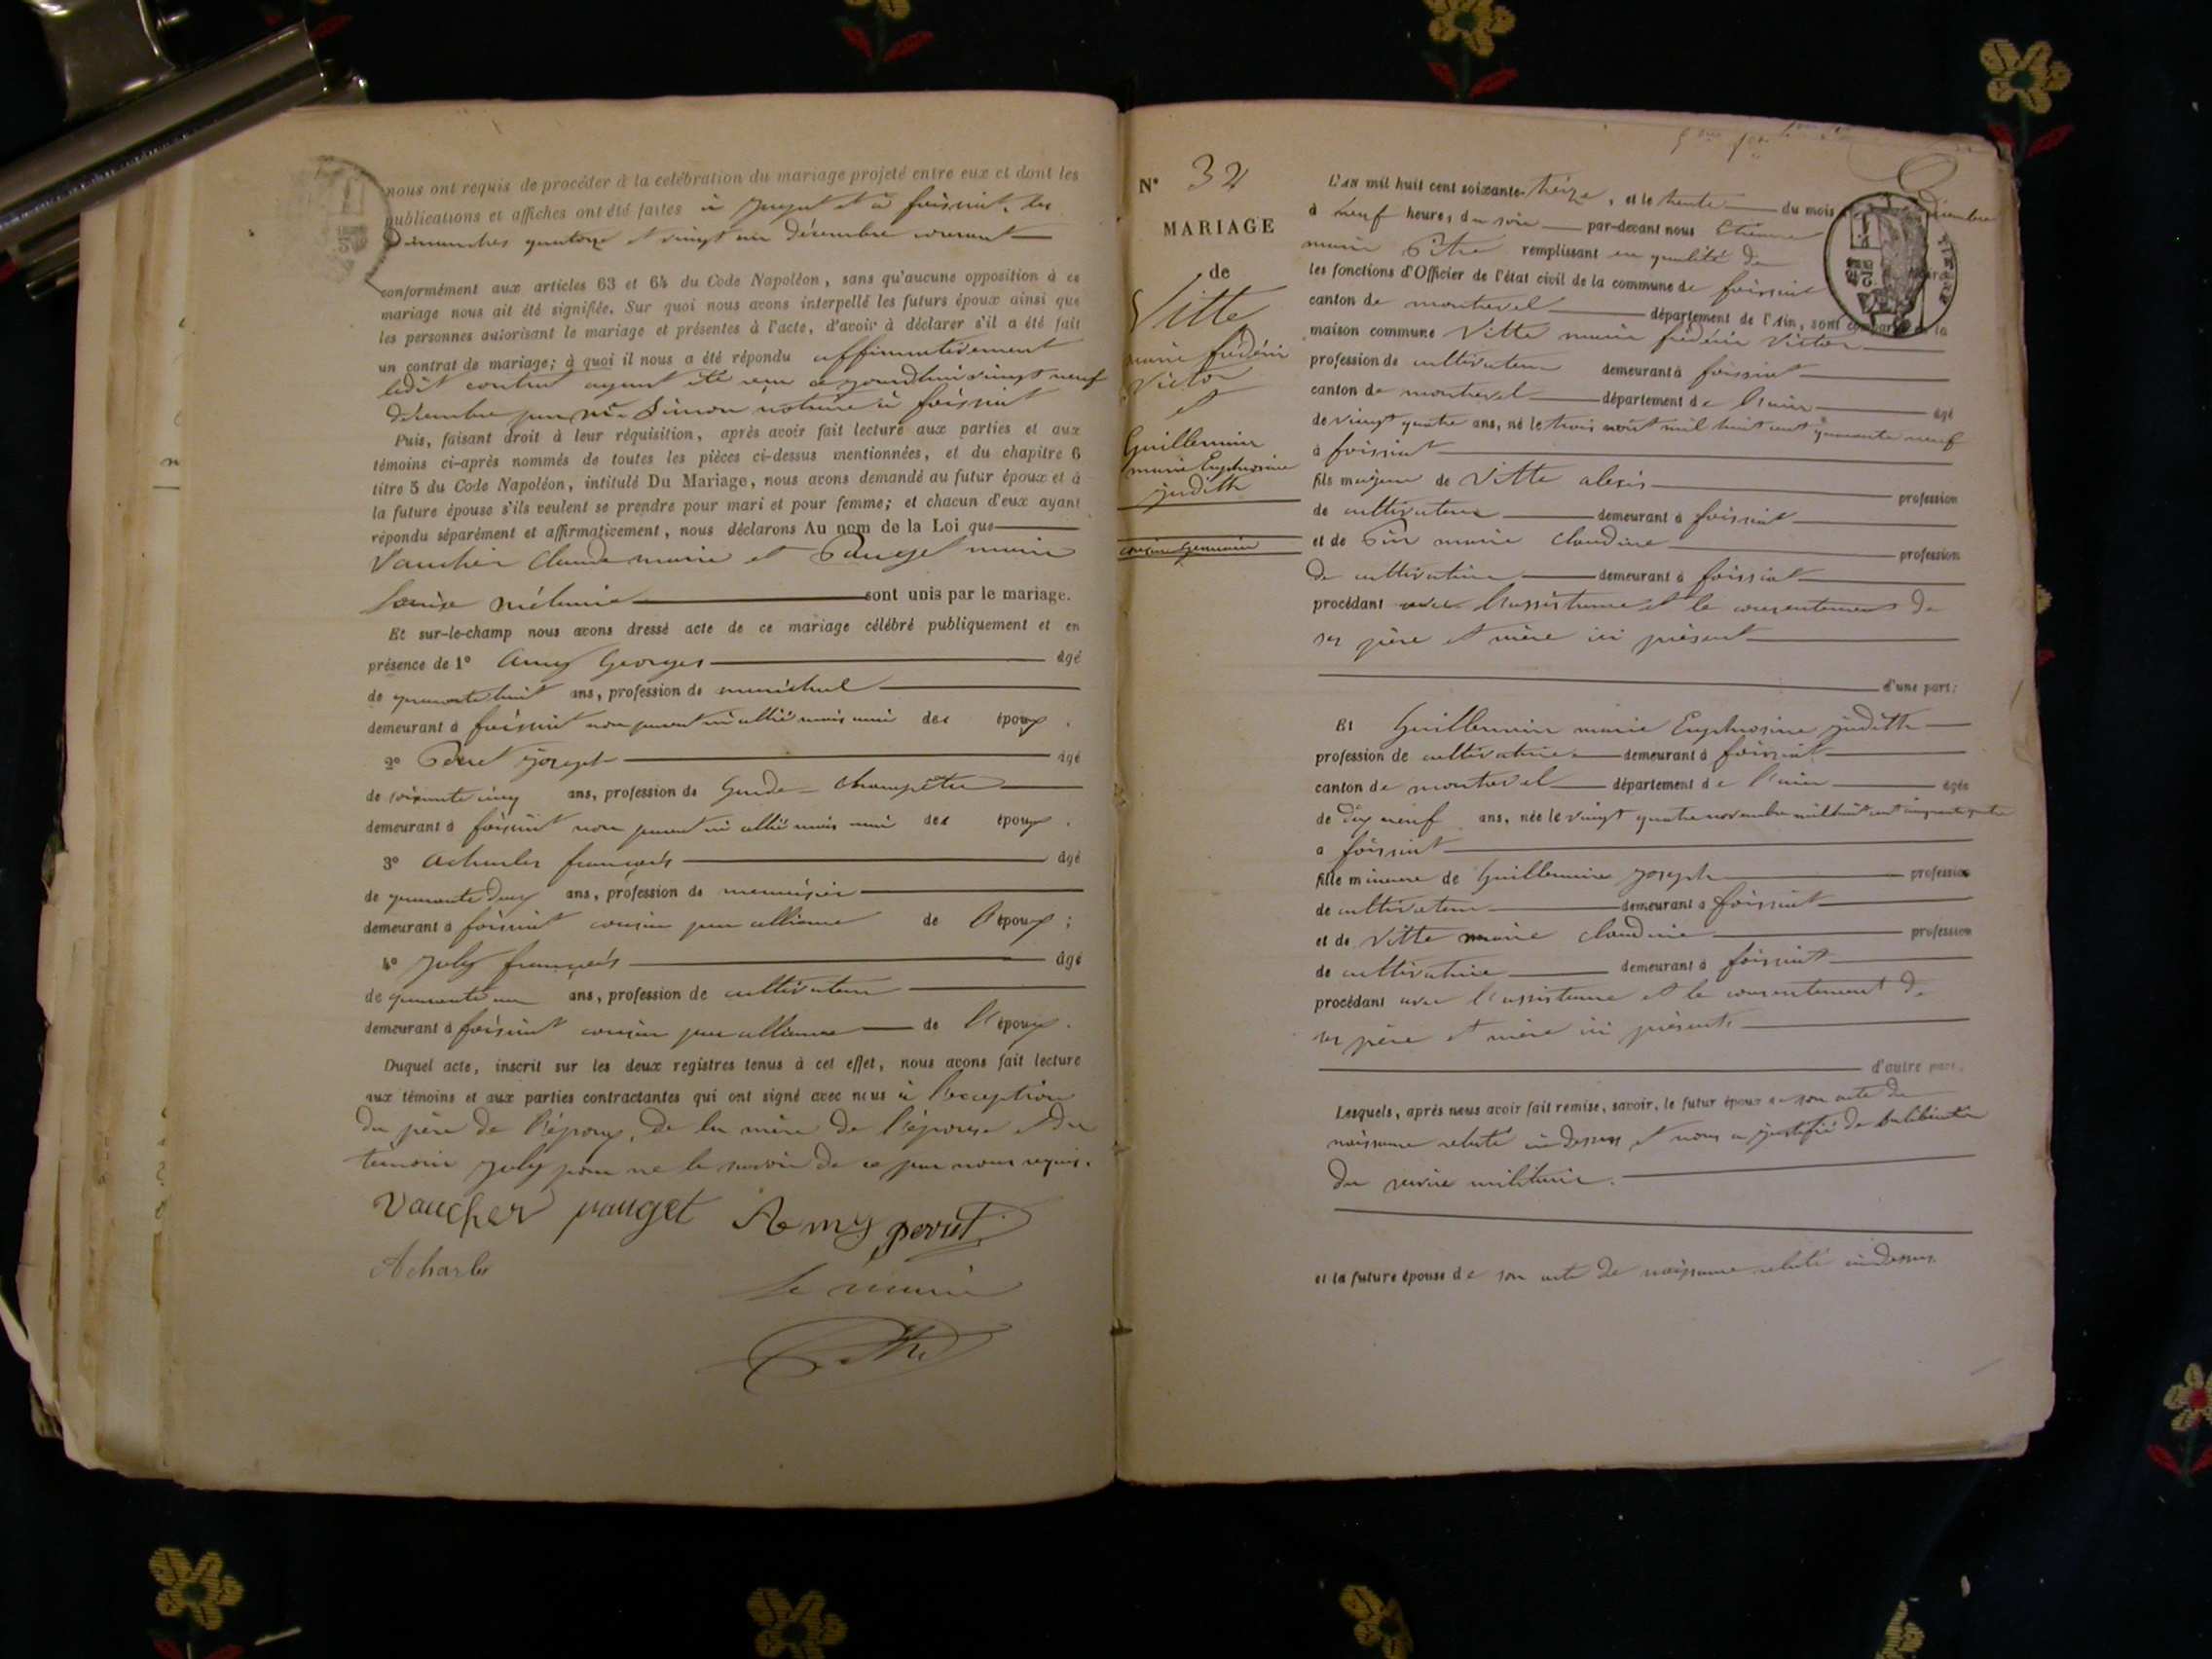 nous ont requis de procéder à la célébration du mariage projeté entre eux et dont les
publications et affiches ont été faites à et à foissiat, les
Dimanches quatorze et vingt un décembre courant
conformément aux articles 63 et 64 du Code Napoléon, sans qu'aucune opposition à ce
mariage nous ait été signifiée. Sur quoi nous avons interpellé les futurs époux ainsi que
les personnes autorisant le mariage et présentes à l'acte, d'avoir à déclarer s'il a été fait
un contrat de mariage; à quoi il nous a été répondu affirmativement
ledit contrat ayant été reçu ce jourd'hui vingt neuf
décembre par me Simon notaire à foissiat
Puis, faisant droit à leur réquisition, après avoir fait lecture aux parties et aux
témoins ci-après nommés de toutes les pièces ci-dessus mentionnées, et du chapitre 6
titre 5 du Code Napoléon, intitulé Du Mariage, nous avons demandé au futur époux et à
la future épouse s'ils veulent se prendre pour mari et pour femme; et chacun d'eux ayant
répondu séparément et affirmativement, nous déclarons Au nom de la Loi que
Vaucher Claude marie et Pauget marie
Louise mélanie sont unis par le mariage.
Et sur-le-champ nous avons dressé acte de ce mariage célébré publiquement et en
présence de 1° Amy Georges âgé
de quarante huit ans, profession de maréchal
demeurant à foissiat non parent ni allié mais ami des époux.
2° Perret joseph âgé
de soixante cinq ans, profession de Garde-champêtre
demeurant à foissiat non parent ni allié mais ami des époux.
3° Acharles françois âgé
de quarante deux ans, profession de menuisier
demeurant à foissiat cousin par alliance de l'époux;
4° joly françois âgé
de quarante un ans, profession de cultivateur
demeurant à foissiat cousin par alliance de l'époux.
Duquel acte, inscrit sur les deux registres tenus à cet effet, nous avons fait lecture
aux témoins et aux parties contractantes qui ont signé avec nous à l'exception
du père de l'époux, de la mère de l'épouse et du
témoin joly pour ne le savoir de ce par nous requis.
Vaucher pauget Amy perret
Acharles
Le maire
Pitre
N° 32
MARIAGE
de
Vitte
marie frédéric
Victor
et
Guillermin
marie Euphrosine
judith
cousins germains
L'AN mil huit cent soixante-treize, et le trente du mois Décembre
à neuf heures du soir par-devant nous Etienne
marie Pitre remplissant en qualité de
les fonctions d'Officier de l'état civil de la commune de foissiat
canton de montrevel département de l'Ain, sont comparus à la
maison commune Vitte marie frédéric Victor
profession de cultivateur demeurant à foissiat
canton de montrevel département de l'ain âgé
de vingt quatre ans, né le trois août mil huit cent quarante neuf
à foissiat
fils majeur de Vitte alexis profession
de cultivateur demeurant à foissiat
et de marie claudine profession
de cultivatrice demeurant à foissiat
procédant avec l'assistance et le consentement de
ses père et mère ici présent
d'une part;
Et Guillermin marie Euphrosine judith
profession de cultivatrice demeurant à foissiat
canton de montrevel département de l'ain âgée
de dix neuf ans, née le vingt quatre novembre mil huit cent cinquante quatre
à foissiat
fille mineure de Guillermin joseph profession
de cultivateur demeurant à foissiat
et de Vitte marie claudine profession
de cultivatrice demeurant à foissiat
procédant avec l'assistance et le consentement de
ses père et mère ici présents
d'autre part.
Lesquels, après nous avoir fait remise, savoir, le futur époux de son acte de
naissance relaté ci-dessus et nous a justifié de sa libération
du service militaire.
et la future épouse de son acte de naissance relaté ci-dessus.